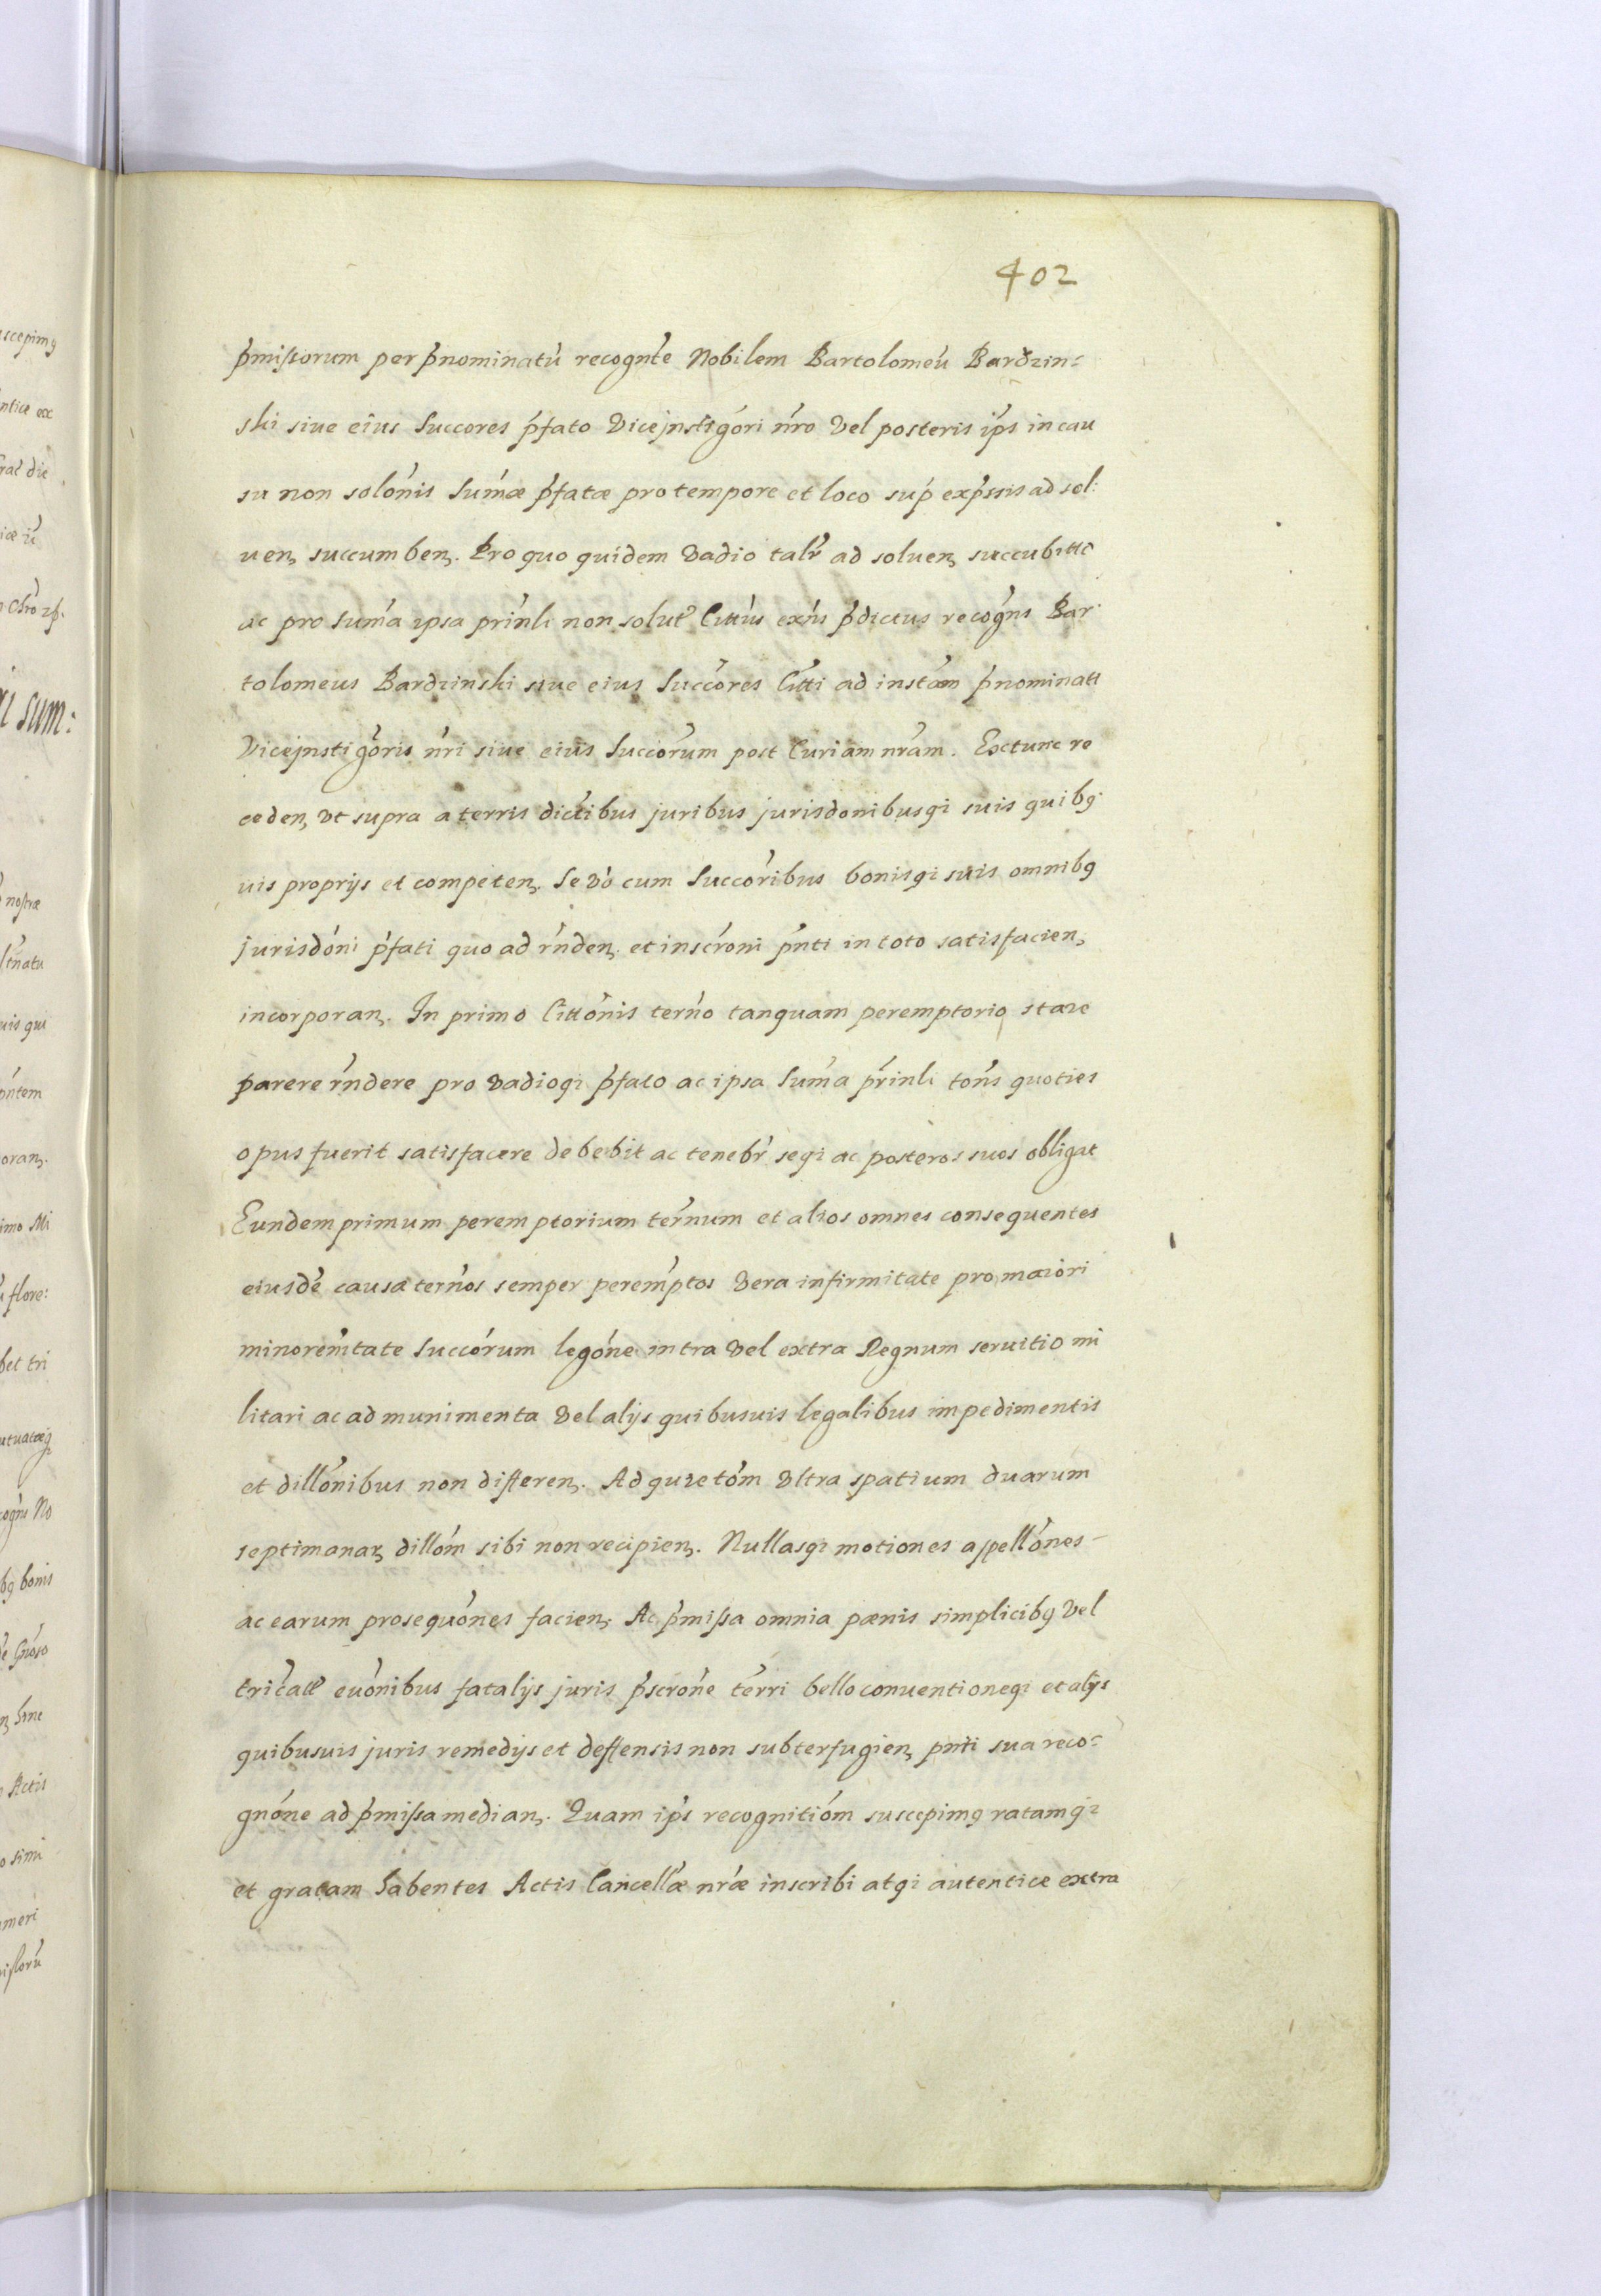 402
p̃missorum per p̃nominatũ recogntẽ Nobilem Bartolomeũ Bardzin=
ski siue eius Succores p̃fato Vicejnstigõri nr̃o Vel posteris ip̃s in cau
su non solõnis Sum̃æ p̃fatæ pro tempore et loco sup̃ exp̃ssis ad sol:
uen, succumben. Pro quo quidem Vadio talr̃ ad soluen, succubitto
ac pro Sum̃a ipsa prĩnli non solut Cittũs exñs p̃dictus recogñs Bar
tolomeus Bardzinski siue eius Succõres Citti ad instãm p̃nominati
Vicejnstigõris nr̃i siue eius Succõrum post Curiam nrãm. Extunc re
ceden, vt supra a terris dictibus juribus jurisdonibusqi suis quibq
uis proprijs et competen, Se Vo cum Succõribus bonisqi suis omnibq
jurisdõni p̃fati quo ad rñden, et inscrõni pñti in toto satisfacien,
incorporan, In primo Cittõnis terño tanquam peremptorio stare
parere rñdere pro Vadioqi p̃fato ac ipsa Sum̃a prĩnli toñs quoties
opus fuerit satisfacere debebit ac tenebr̃ seqi ac posteros suos obligat
Eundem primum peremptorium terñum et alios omnes consequentes
eiusdẽ causa terños semper peremp̃tos Vera infirmitate pro maiori
minorem̃tate Succõrum legõne intra Vel extra Regnum seruitio mi
litari ac ad munimenta Vel alijs quibusuis legalibus impedimentis
et dillõnibus non differen, Ad quietõm Vltra spatium duarum
septimanar, dillõm sibi non recipien, Nullasqi motiones appellõnes
ac earum prosequõnes facien, Ac p̃missa omnia pænis simplicibq Vel
tricat euõnibus fatalijs juris p̃scrõne ter̃ri bello conuentioneqi et alijs
quibusuis juris remedijs et deffensis non subterfugien, pñti sua reco=
gnõne ad p̃missa median, Quam ip̃s recognitiõm suscepimq ratamqi
et gratam habentes Actis Cancellæ̃ nrǣ inscribi atqi autentice extra